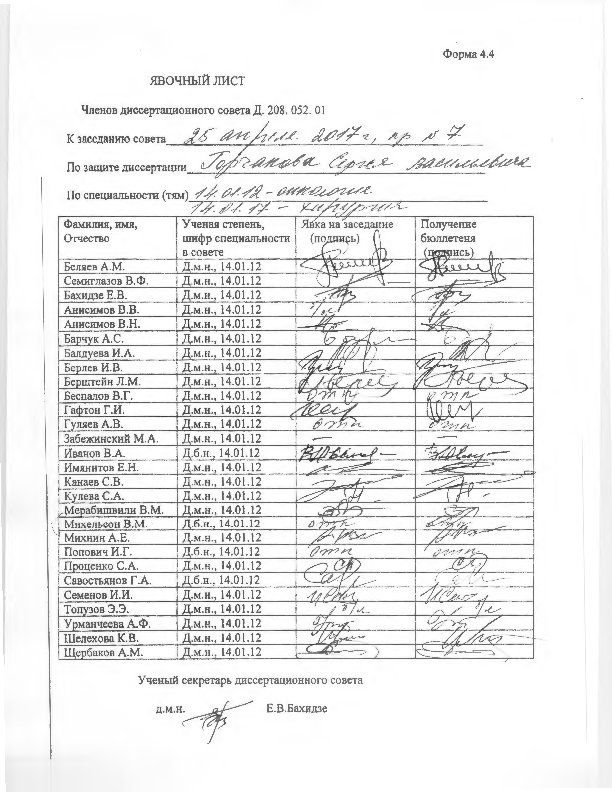 Форма 4.4
ЯВОЧНЫЙ ЛИСТ
Членов диссертационного совета Д. 208. 052. 01
К заседанию совета 25 апреля 2017 г, пр № 7
По защите диссертации Горчакова Сергея Васильевича
По специальности (тям) 14.01.12 - онкология
14.01.17 - хирургия
Фамилия, имя, Отчество Ученая степень, шифр специальности в совете Явка на заседание (подпись) Получение бюллетеня (подпись)
Беляев А.М. Д.м.н., 14.01.12
Семиглазов В.Ф. Д.м.н., 14.01.12
Бахидзе Е.В. Д.м.н., 14.01.12
Анисимов В.В. Д.м.н., 14.01.12
Анисимов В.Н. Д.м.н., 14.01.12
Барчук А.С. Д.м.н., 14.01.12
Балдуева И.А. Д.м.н., 14.01.12
Берлев И.В. Д.м.н., 14.01.12
Берштейн Л.М. Д.м.н., 14.01.12
Беспалов В.Г. Д.м.н., 14.01.12 отп отп
Гафтон Г.И. Д.м.н., 14.01.12
Гуляев А.В. Д.м.н., 14.01.12 отп отп
Забежинский М.А. Д.м.н., 14.01.12 — —
Иванов В.А. Д.б.н., 14.01.12
Имянитов Е.Н. Д.м.н., 14.01.12
Канаев С.В. Д.м.н., 14.01.12
Кулева С.А. Д.м.н., 14.01.12
Мерабишвили В.М. Д.м.н., 14.01.12
Михельсон В.М. Д.б.н., 14.01.12 отп отп
Михнин А.Е. Д.м.н., 14.01.12
Попович И.Г. Д.б.н., 14.01.12 отп отп
Проценко С.А. Д.м.н., 14.01.12
Савостьянов Г.А. Д.б.н., 14.01.12
Семенов И.И. Д.м.н., 14.01.12
Топузов Э.Э. Д.м.н., 14.01.12
Урманчеева А.Ф. Д.м.н., 14.01.12
Шелехова К.В. Д.м.н., 14.01.12
Щербаков А.М. Д.м.н., 14.01.12
Ученый секретарь диссертационного совета
д.м.н. Е.В.Бахидзе